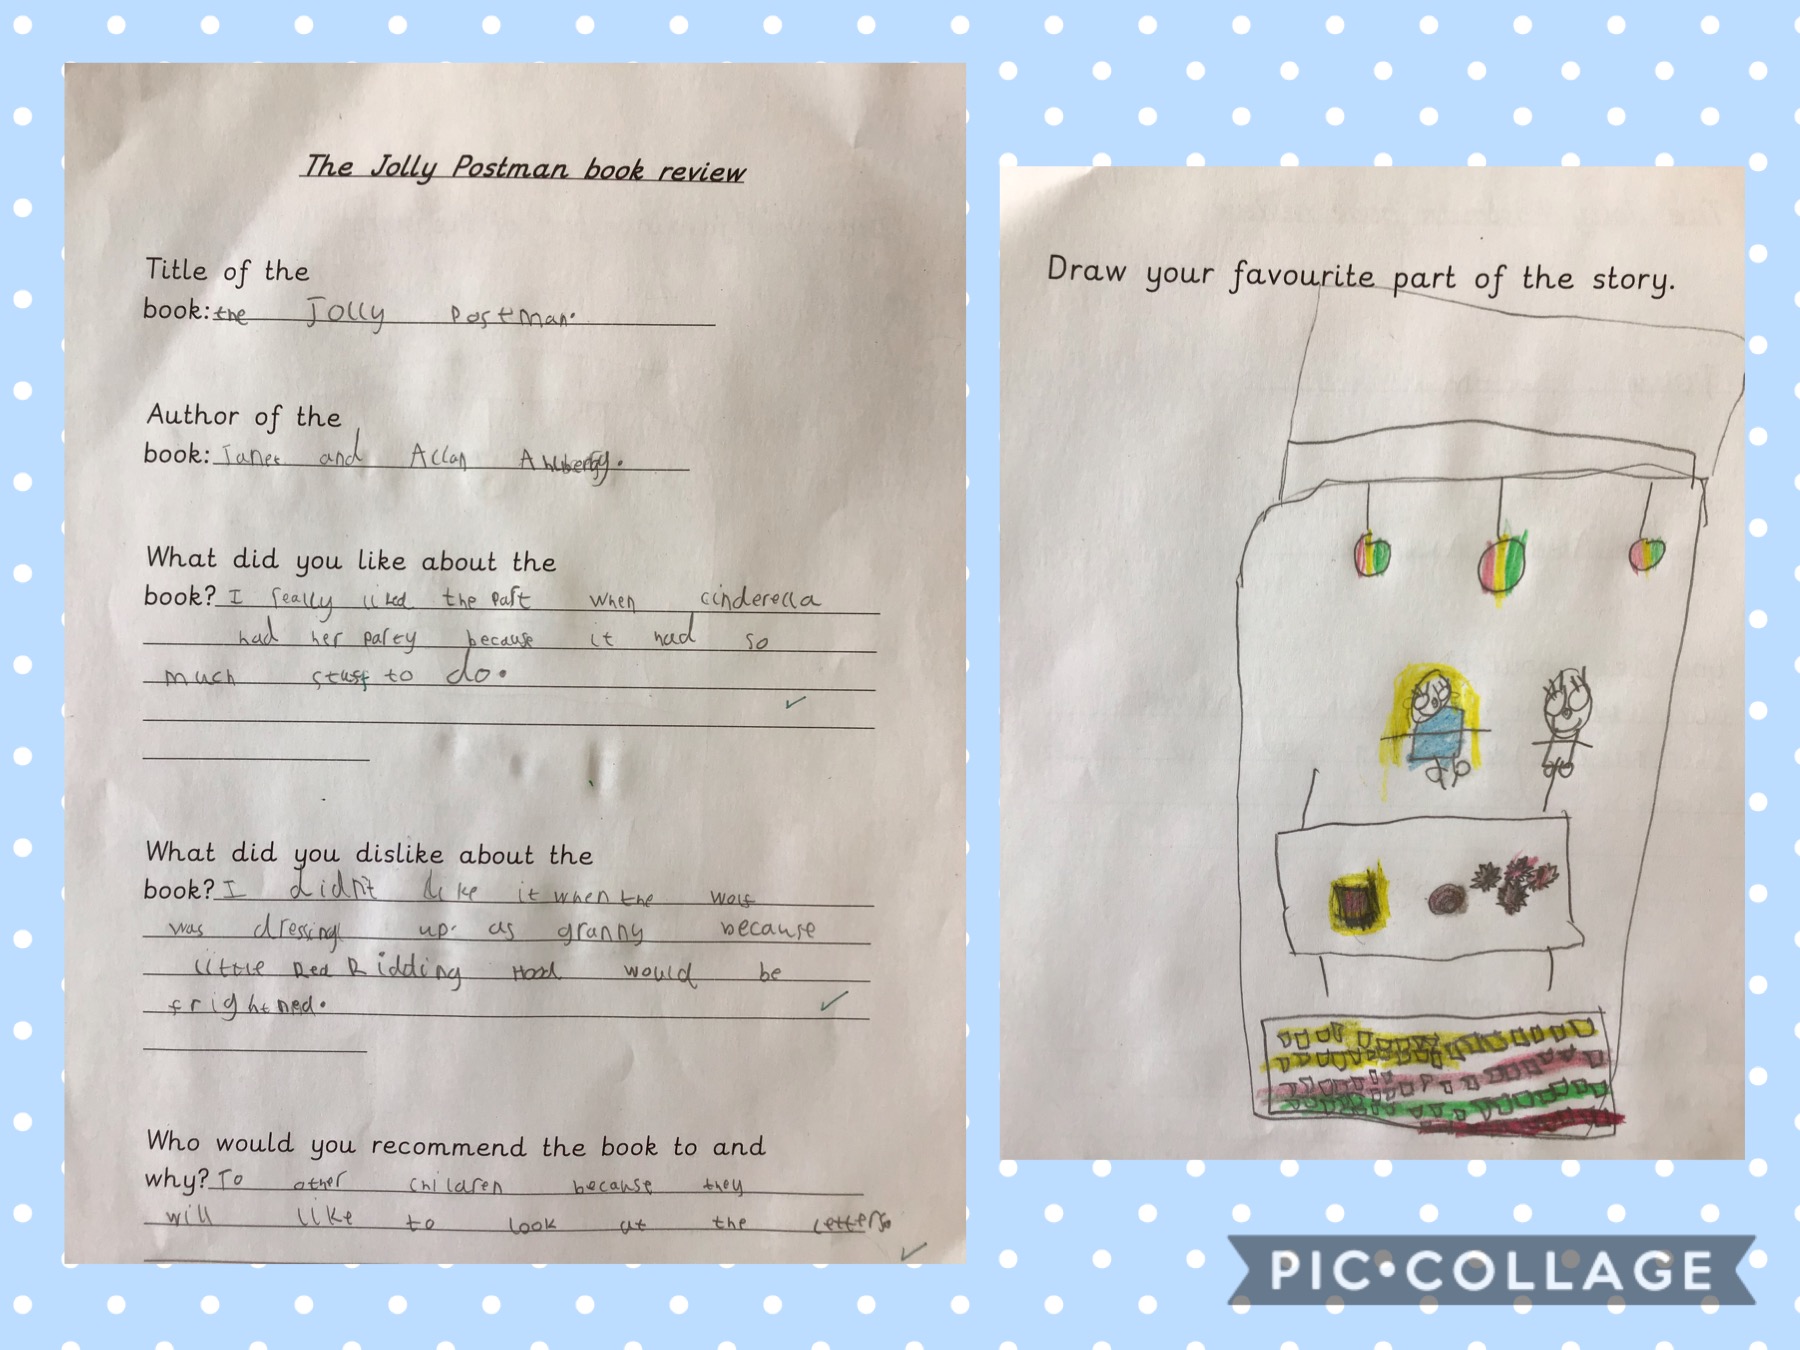 The Jolly Postman book review
Title of the
book: the Jolly Postman.
Author of the
book: Janet and Allan Ahlberg.
What did you like about the
book? I really liked the part when cinderella
had her party because it had so
much stuff to do.
What did you dislike about the
book? I didn't like it when the wolf
was dressing up as granny because
little Red Ridding Hood would be
frightned.
Who would you recommend the book to and
why? To other children because they
will like to look at the letters
Draw your favourite part of the story.
PIC•COLLAGE